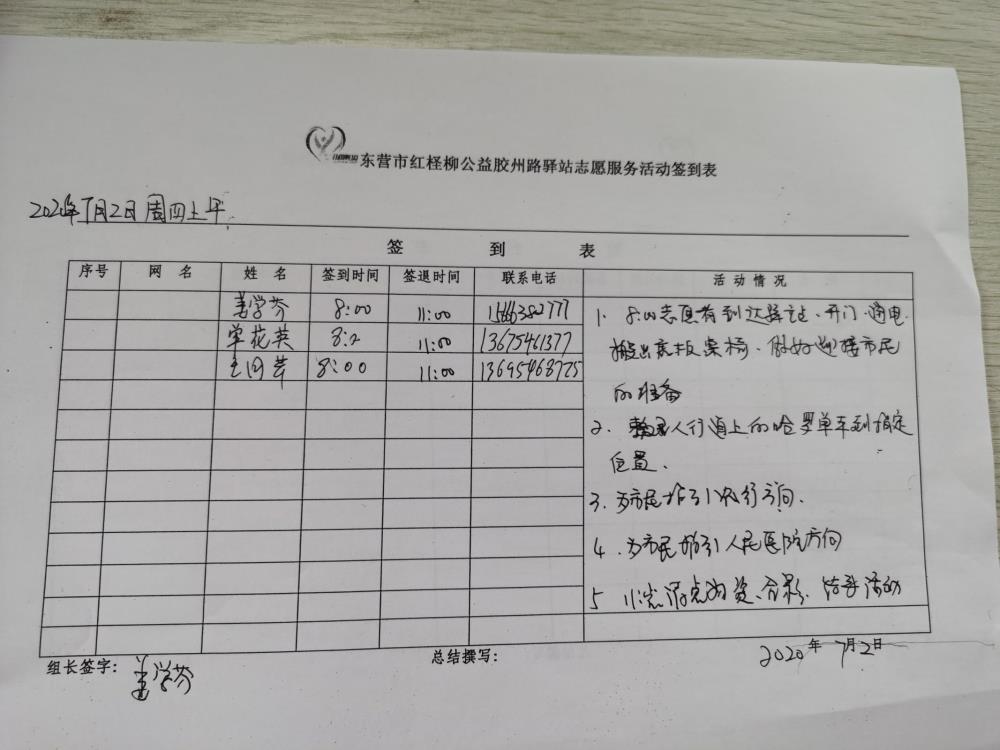 东营市红柽柳公益胶州路驿站志愿服务活动签到表
2020年7月2日周四上午
签 到 表
序号 网 名 姓 名 签到时间 签退时间 联系电话 活 动 情 况
姜学芬 8:00 11:00
李花英 8:2 11:00 13675461377
8:00 11:00 13695468725
1. 8:00志愿者到达驿站、开门、通电
搬出展板桌椅、做好迎接市民
的准备
2. 整理人行道上的哈罗单车到指定
位置.
3. 为市民指引银行方向.
4. 为市民指引人民医院方向
5 11:00 清点物资、合影、结束活动
组长签字: 姜学芬
总结撰写:
2020年7月2日